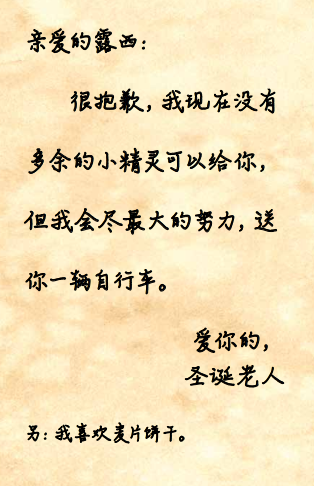 亲爱的露西：
很抱歉，我现在没有
多余的小精灵可以给你，
但我会尽最大的努力，送
你一辆自行车。
爱你的，
圣诞老人
另：我喜欢麦片饼干。